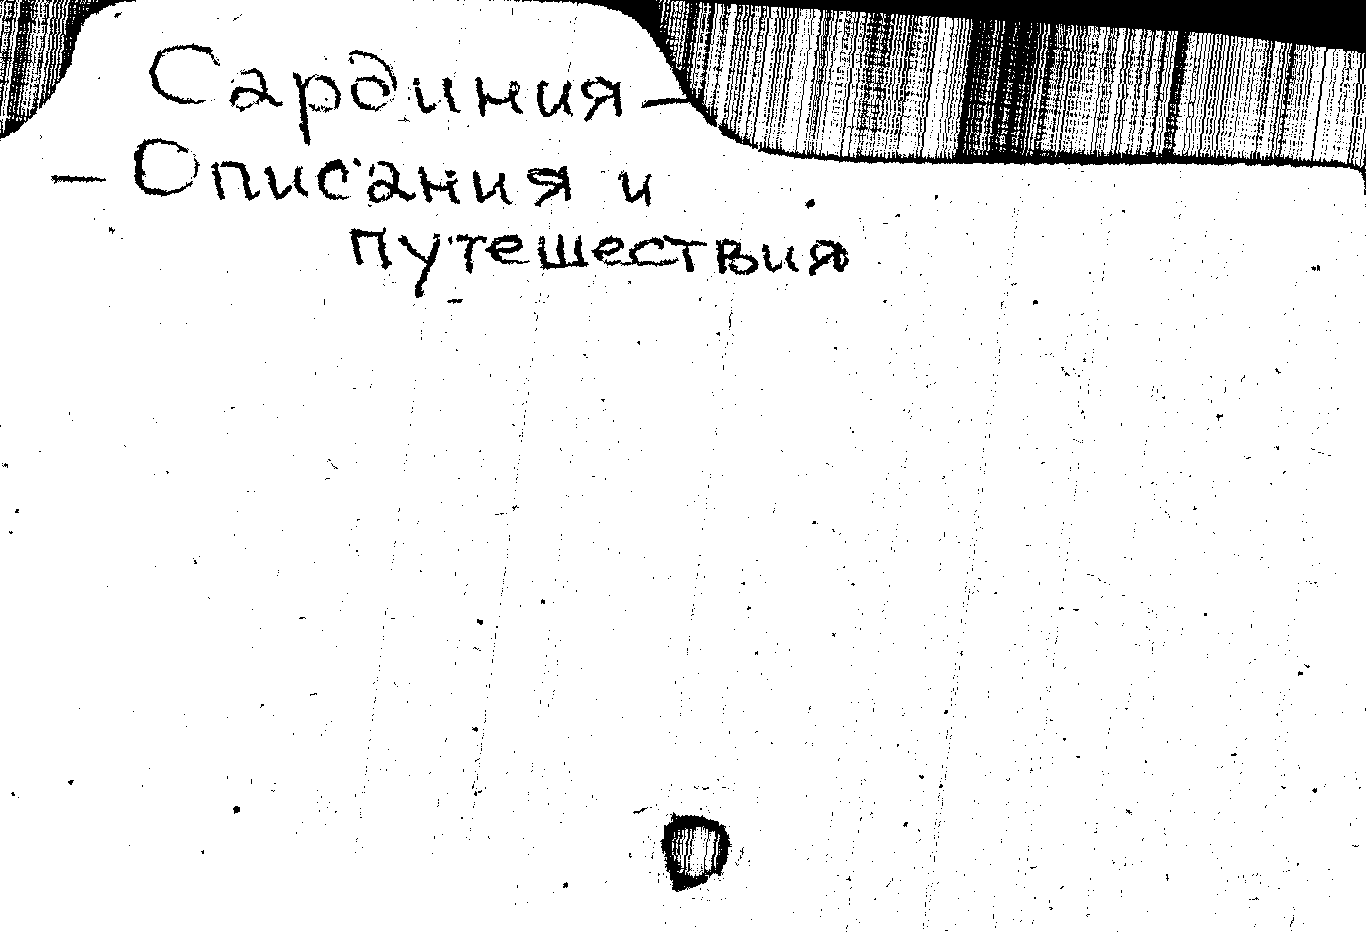 Сардиния –
– Описания и
путешествия